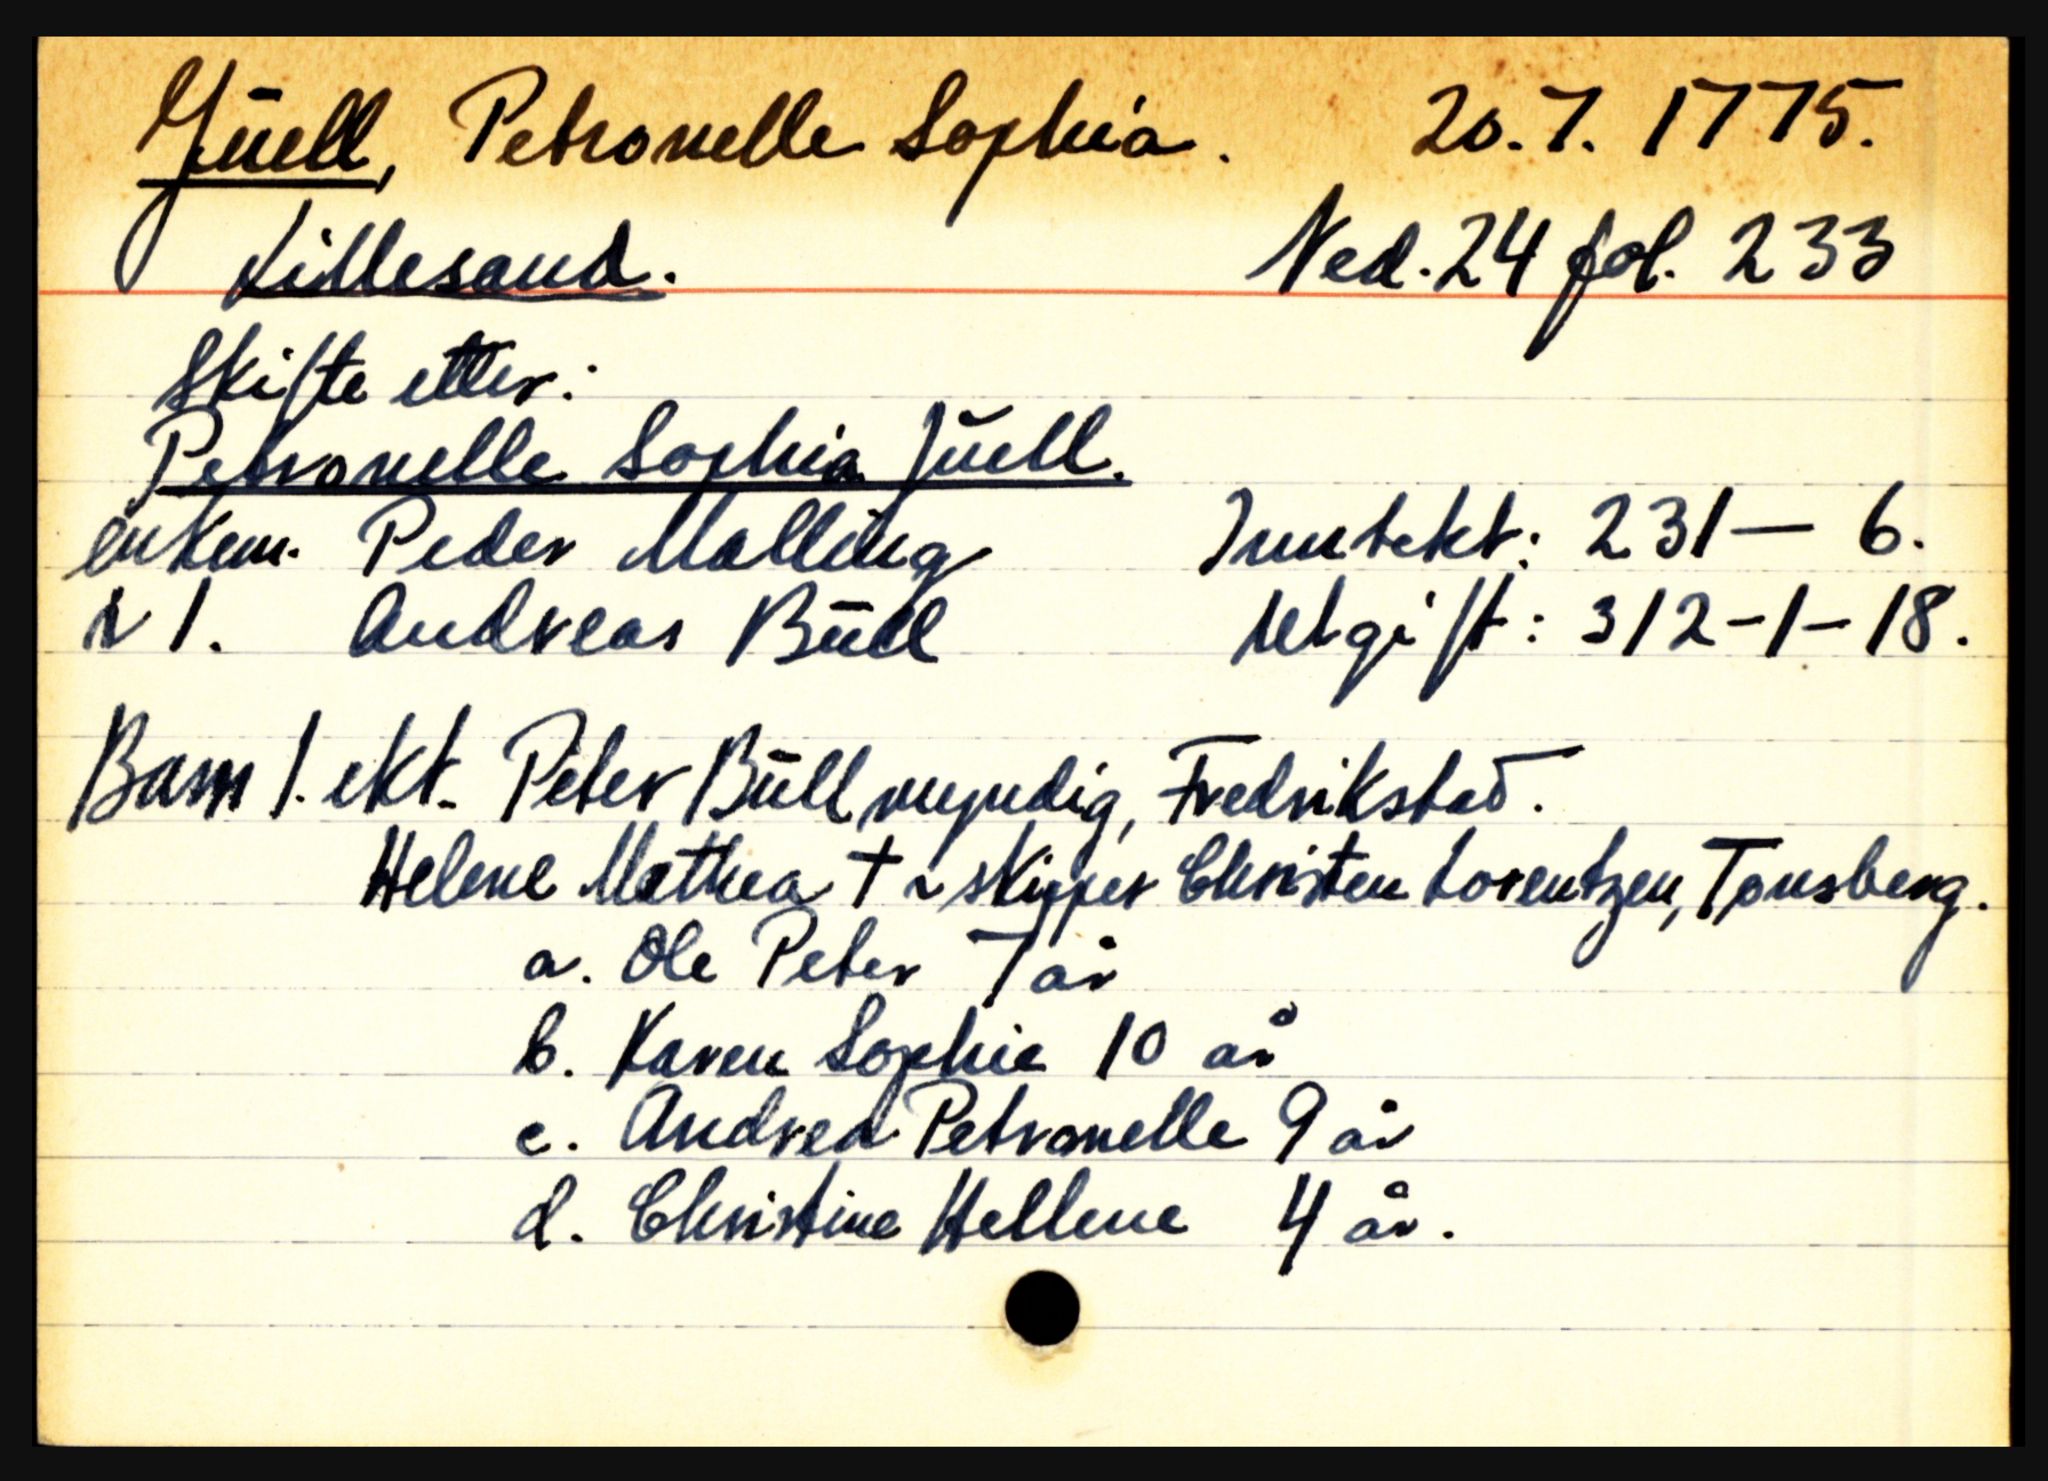 Juell, Petronelle Sophia. 20.7.1775.
Lillesand. Ned. 24 fol. 233
Skifte etter:
Petronelle Sophia Juell.
enkem. Peder Malling Inntekt: 231 — 6.
~ 1. Andreas Büll Utgift: 312-1-18.
Barn 1. ekt. Peter Büll myndig, Fredrikstad.
Helene Mathea † ~ skipper Christen Lorentzen, Tønsberg.
a. Ole Peter 7 år
b. Karen Sophie 10 år
c. Andrea Petronelle 9 år
d. Christine Hellene 4 år.